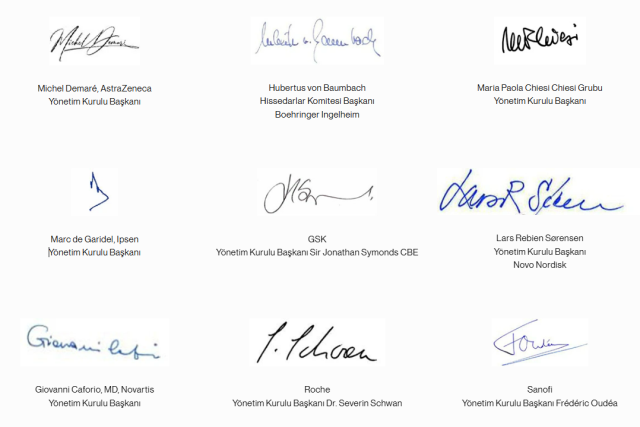 Michel Demaré, AstraZeneca
Yönetim Kurulu Başkanı
Hubertus von Baumbach
Hissedarlar Komitesi Başkanı
Boehringer Ingelheim
Maria Paola Chiesi Chiesi Grubu
Yönetim Kurulu Başkanı
Marc de Garidel, Ipsen
Yönetim Kurulu Başkanı
GSK
Yönetim Kurulu Başkanı Sir Jonathan Symonds CBE
Lars Rebien Sørensen
Yönetim Kurulu Başkanı
Novo Nordisk
Giovanni Caforio, MD, Novartis
Yönetim Kurulu Başkanı
Roche
Yönetim Kurulu Başkanı Dr. Severin Schwan
Sanofi
Yönetim Kurulu Başkanı Frédéric Oudéa